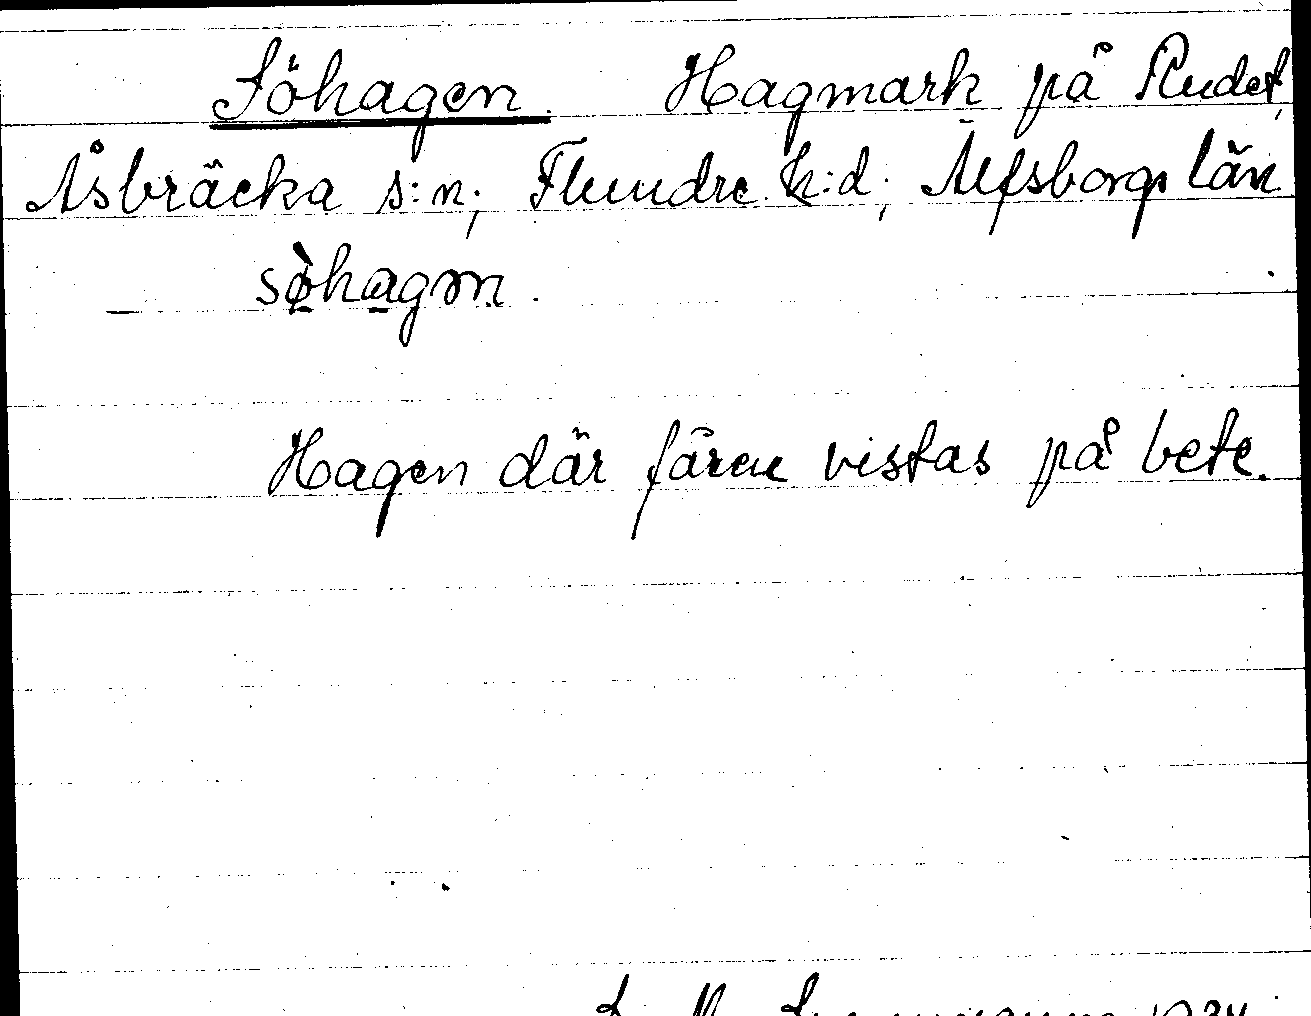 Söhagen. Hagmark på Rudet,
Åsbräcka s:n; Flundre h:d; Älfsborgs län
sø̀hagən.
Hagen där fåren vistas på bete.
1934